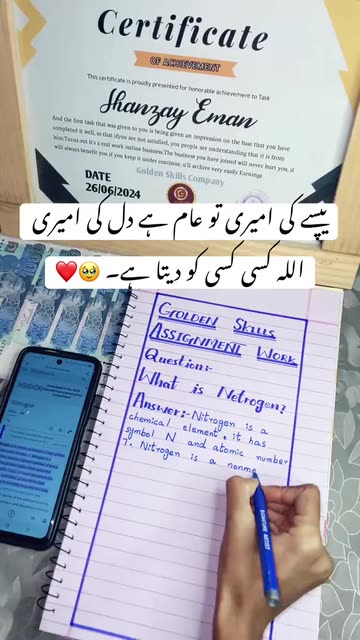 Certificate
OF ACHIEVEMENT
This certificate is proudly presented for honorable achievement to Task
Shanzay Eman
And the first task that was given to you is being given an impression on the base that you have
completed it well, so that ifyou are not satisfied, you people are understanding that it is from
him:Turns out it's a real work online business.The business you have joined will never hurt you, it
will always benefit you if you keep it under continue, u'll archive very easily Earnings
Golden Skills Company
DATE
26/06/2024
پیسے کی امیری تو عام ہے دل کی امیری
اللہ کسی کسی کو دیتا ہے۔ 🥹❤️
GOLDEN SKILLS
ASSIGNMENT WORK
Question:-
What is Netrogen?
Answer:- Nitrogen is a
chemical element, it has
symbol N and atomic number
7. Nitrogen is a nonme
SIGNATURE